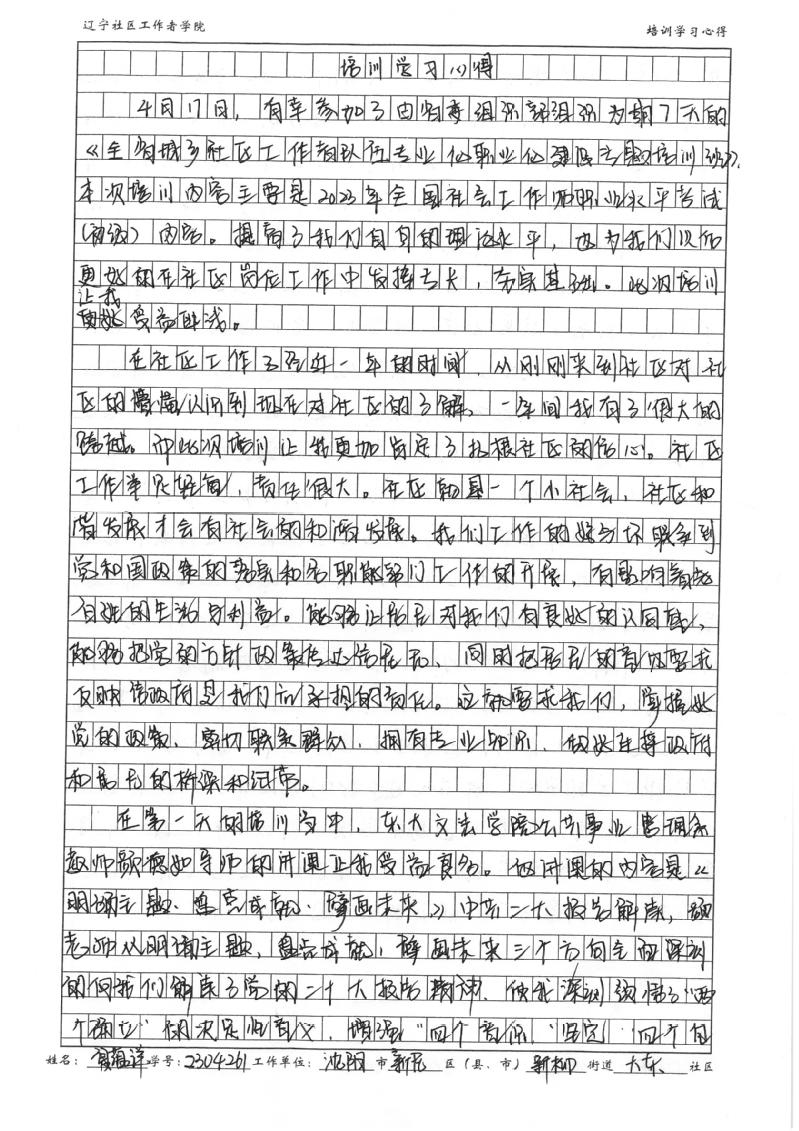 辽宁社区工作者学院
培训学习心得
培训学习心得
4月17日，有幸参加了由省委组织部组织为期7天的
《全省城乡社区工作者队伍专业化职业化建设专题培训班》，
本次培训内容主要是2023年全国社会工作师职业水平考试
（初级）内容。提高了我们自身的理论水平，也为我们以后
更好的在社区岗位工作中发挥专长，夯实基础。此次培训
让我
受益匪浅。
在社区工作了将近一年的时间，从刚刚来到社区对社
区的懵懂认识到现在对社区的了解，一年间我有了很大的
跨越。而此次培训让我更加肯定了扎根社区的信心。社区
工作单凡轻面，责任很大。社区就是一个小社会，社区和
谐发展才会有社会的和谐发展。我们工作的好与坏联系到
党和国政策的落实和各职能部门工作的开展，有影响着
百姓的生活与利益。能够让居民对我们有良好的认同感，
能够把党的方针政策传达给居民，同时把居民的意见要求
反映给政府是我们所承担的责任。这就要求我们，掌握好
党的政策、密切联系群众、拥有专业知识、做好连接政府
和居民的桥梁和纽带。
在第一天的培训当中，东大文法学院公共事业管理系
教师颜德如导师的讲课让我受益良多。他讲课的内容是《
明确主题、盘点成就、擘画未来》中共二大报告解读，颜
老师从明确主题，盘点成就，擘画未来三个方向全面深刻
的向我们解读了党的二十大报告精神，使我深刻领悟了“两
个确立”的决定性意义，增强“四个意识”、“坚定”四个自
姓名： 学号：2304261 工作单位：沈阳 市 新民 区（县、市） 新柳 街道 大东 社区